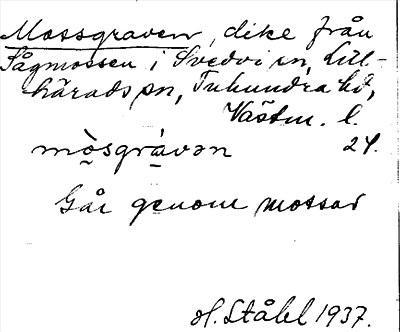 Mossgraven, dike från
Sågmossen i Svedvi sn, Lill-
härads sn, Tuhundra hd,
Västm. l.
mòsgràvən 24.
Går genom mossar
H. Ståhl 1937.